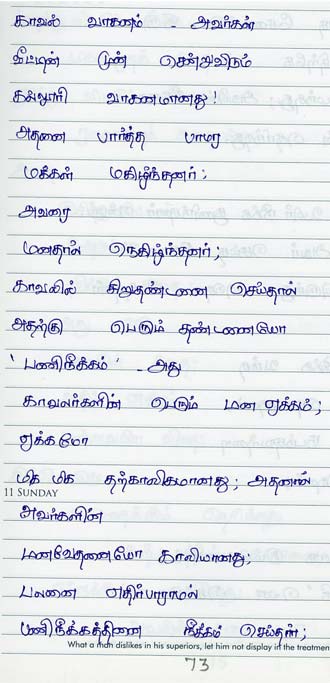 காவல் வாகனம் - அவர்கள்
வீட்டின் முன் சென்றுவிடும்
கல்லூரி வாகனமானது!
அதனை பார்த்த பாமர
மக்கள் மகிழ்ந்தனர்;
அவரை
மனதால் நெகிழ்ந்தனர்;
காவலில் சிறுதண்டனை செய்தால்
அதற்கு பெரும் தண்டனையோ
'பணிநீக்கம்' - அது
காவலர்களின் பெரும் மன ஏக்கம்;
ஏக்கமோ
மிக மிக தற்காலிகமானது; அதனால்
11 SUNDAY
அவர்களின்
மனவேதனையோ காலியானது;
பலனை எதிர்பாராமல்
பணிநீக்கத்தினை நீக்கம் செய்தார்;
What a man dislikes in his superiors, let him not display in the treatment
73